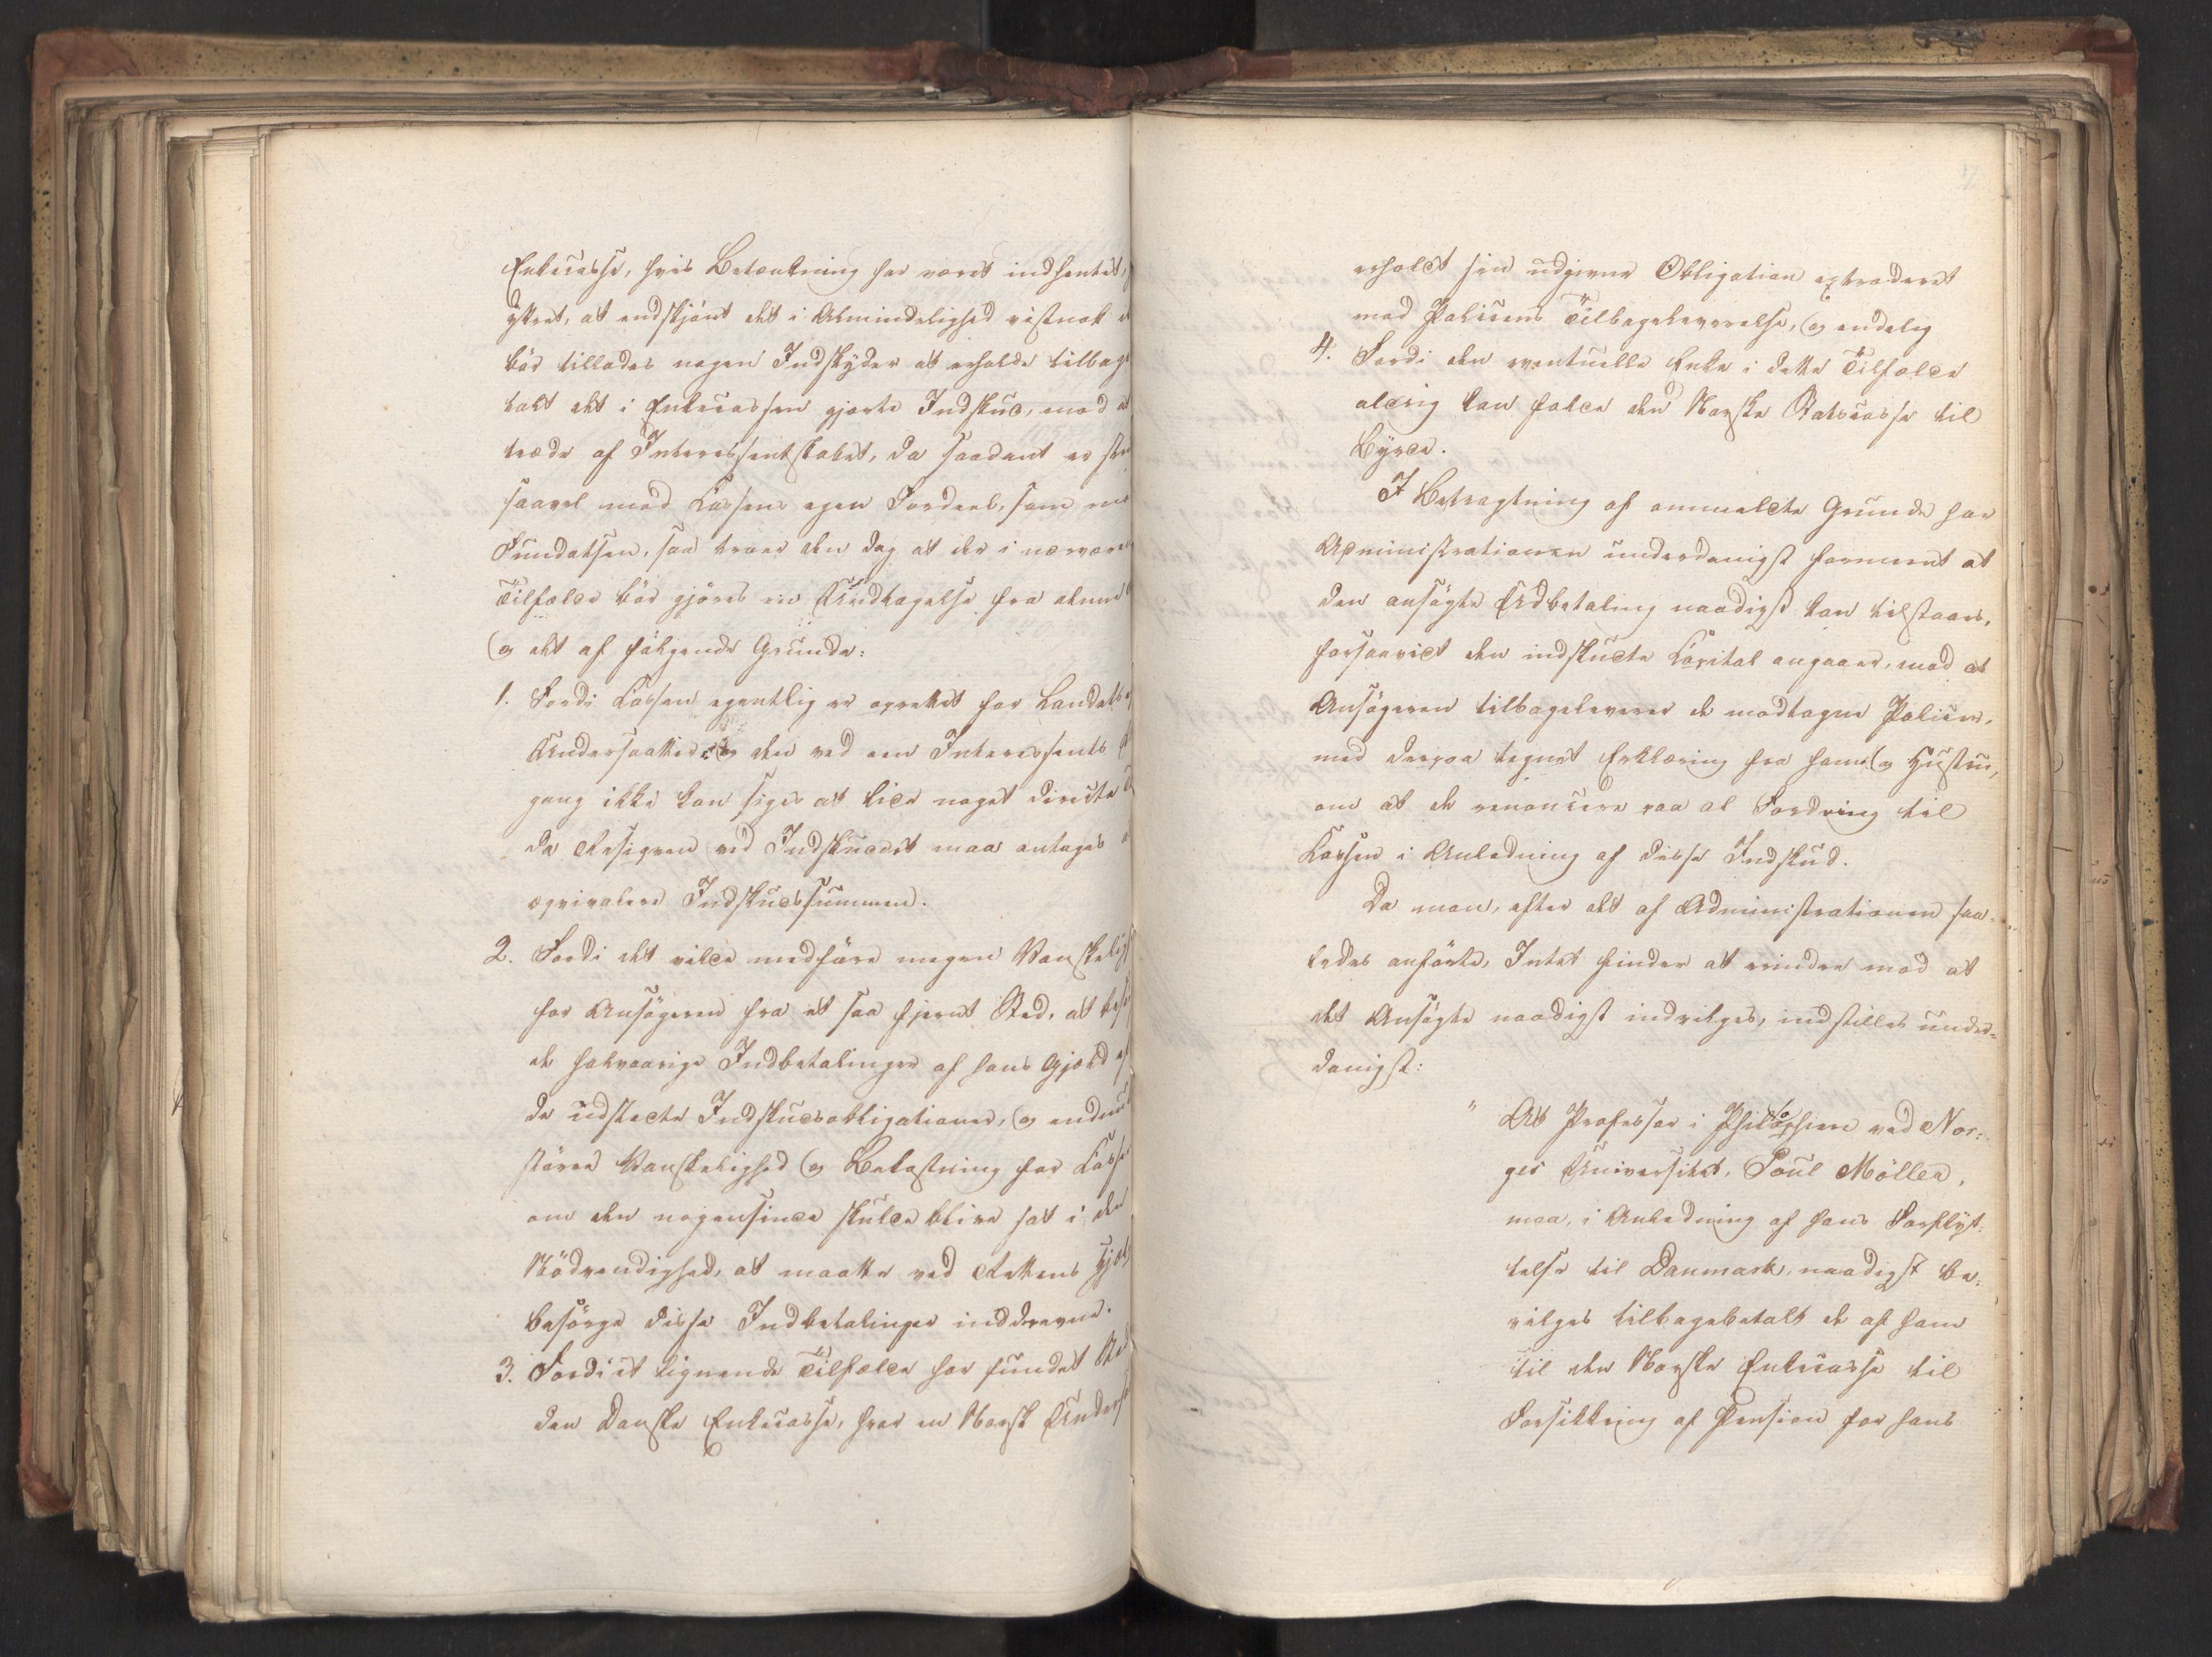 Enkecasse, hvis Betænkning har været indhentet,
yttret, at endskjönt det i Almindelighed vistnok
bör tillades nogen Indskyder at erholde tilbage
talt det i Enkecassen gjorte Indskud, mod at
træde af Interessentskabet, da saadant er
saavel mod Cassens egen Fordeel, som
Fundatsen, saa troer den dog at der i nærvære
Tilfælde bör gjöres en Undtagelse fra
og det af fölgende Grunde:
1. Fordi Cassen egentlig er oprettet for Landets
Undersaatter og den ved een Interessents
gang ikke kan siges at lide noget directe
da Risiqven ved Indskudet maa antages
æqvivalere Indskudssummen.
2. Fordi det vilde medföre megen Vanskelig
for Ansögeren fra et saa fjernt Sted, at
de halvaarige Indbetalinger af hans Gjæld
de udstedte Indskudsobligationer, og endnu
större Vanskelighed og Bekostning for Casse
om den nogensinde skulde blive sat i den
Nödvendighed, at maatte ved Rettens Hjæl
besörge disse Indbetalinger inddrevne.
3. Fordi et lignende Tilfælde har fundet Sted
den Danske Enkecasse, hvor en Norsk Unders
erholdt sin udgivne Obligation extraderet
mod Policens Tilbageleverelse, og endelig
4. Fordi den eventuelle Enke i dette Tilfælde
aldrig kan falde den Norske Statscasse til
Byrde.
I Betragtning af anmeldte Grunde har
Administrationen underdanigst formeent at
den ansögte Udbetaling naadigst kan tilstaaes,
forsaavidt den indskudte Capital angaaer, mod at
Ansögeren tilbageleverer de modtagne Policer,
med derpaa tegnet Erklæring fra ham og Hustru,
om at de renoncere paa al Fordring til
Cassen i Anledning af disse Indskud.
Da man, efter det af Administrationen saa-
ledes anförte, Intet finder at erindre mod at
det Ansögte naadigst indvilges, indstilles under-
danigst:
" At Professor i Philosophien ved Nor-
ges Universitet, Poul Möller,
maa, i Anledning af hans Forflyt-
telse til Danmark, naadigst be-
vilges tilbagebetalt de af ham
til den Norske Enkecasse til
Forsikkring af Pension for hans